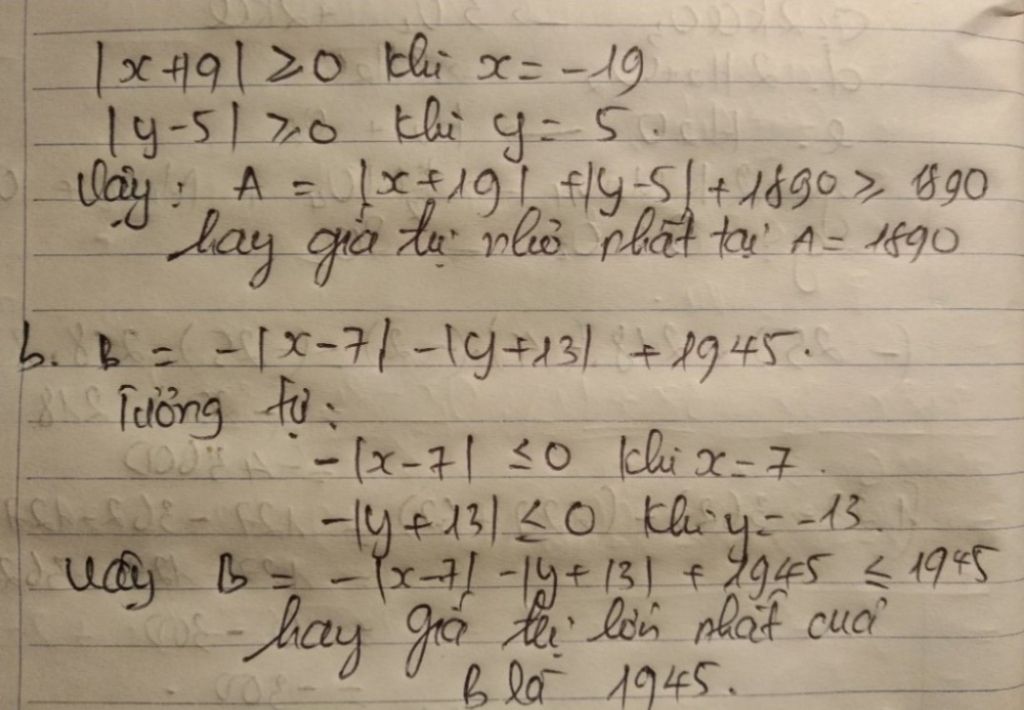 |x+19| ≥ 0 khi x = -19
|y-5| ≥ 0 khi y = 5.
Vậy: A = |x+19| + |y-5| + 1890 ≥ 1890
hay giá trị nhỏ nhất tại A = 1890
b. B = -|x-7| -|y+13| + 1945.
Tương tự:
-|x-7| ≤ 0 khi x = 7.
-|y+13| ≤ 0 khi y = -13.
Vậy B = -|x-7| -|y+13| + 1945 ≤ 1945
hay giá trị lớn nhất của
B là 1945.